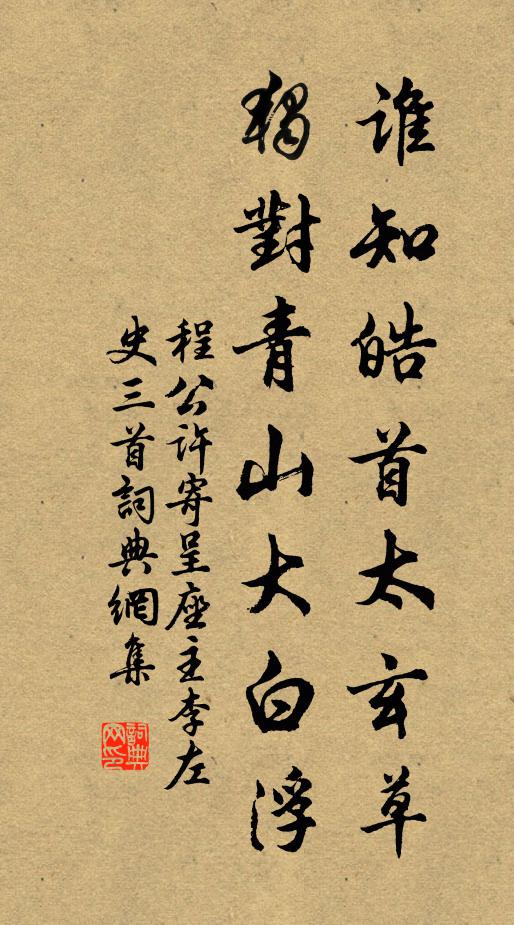 誰知皓首太玄草
獨對青山大白浮
程公許寄呈座主李左
史三首詞典網集
詞典網印